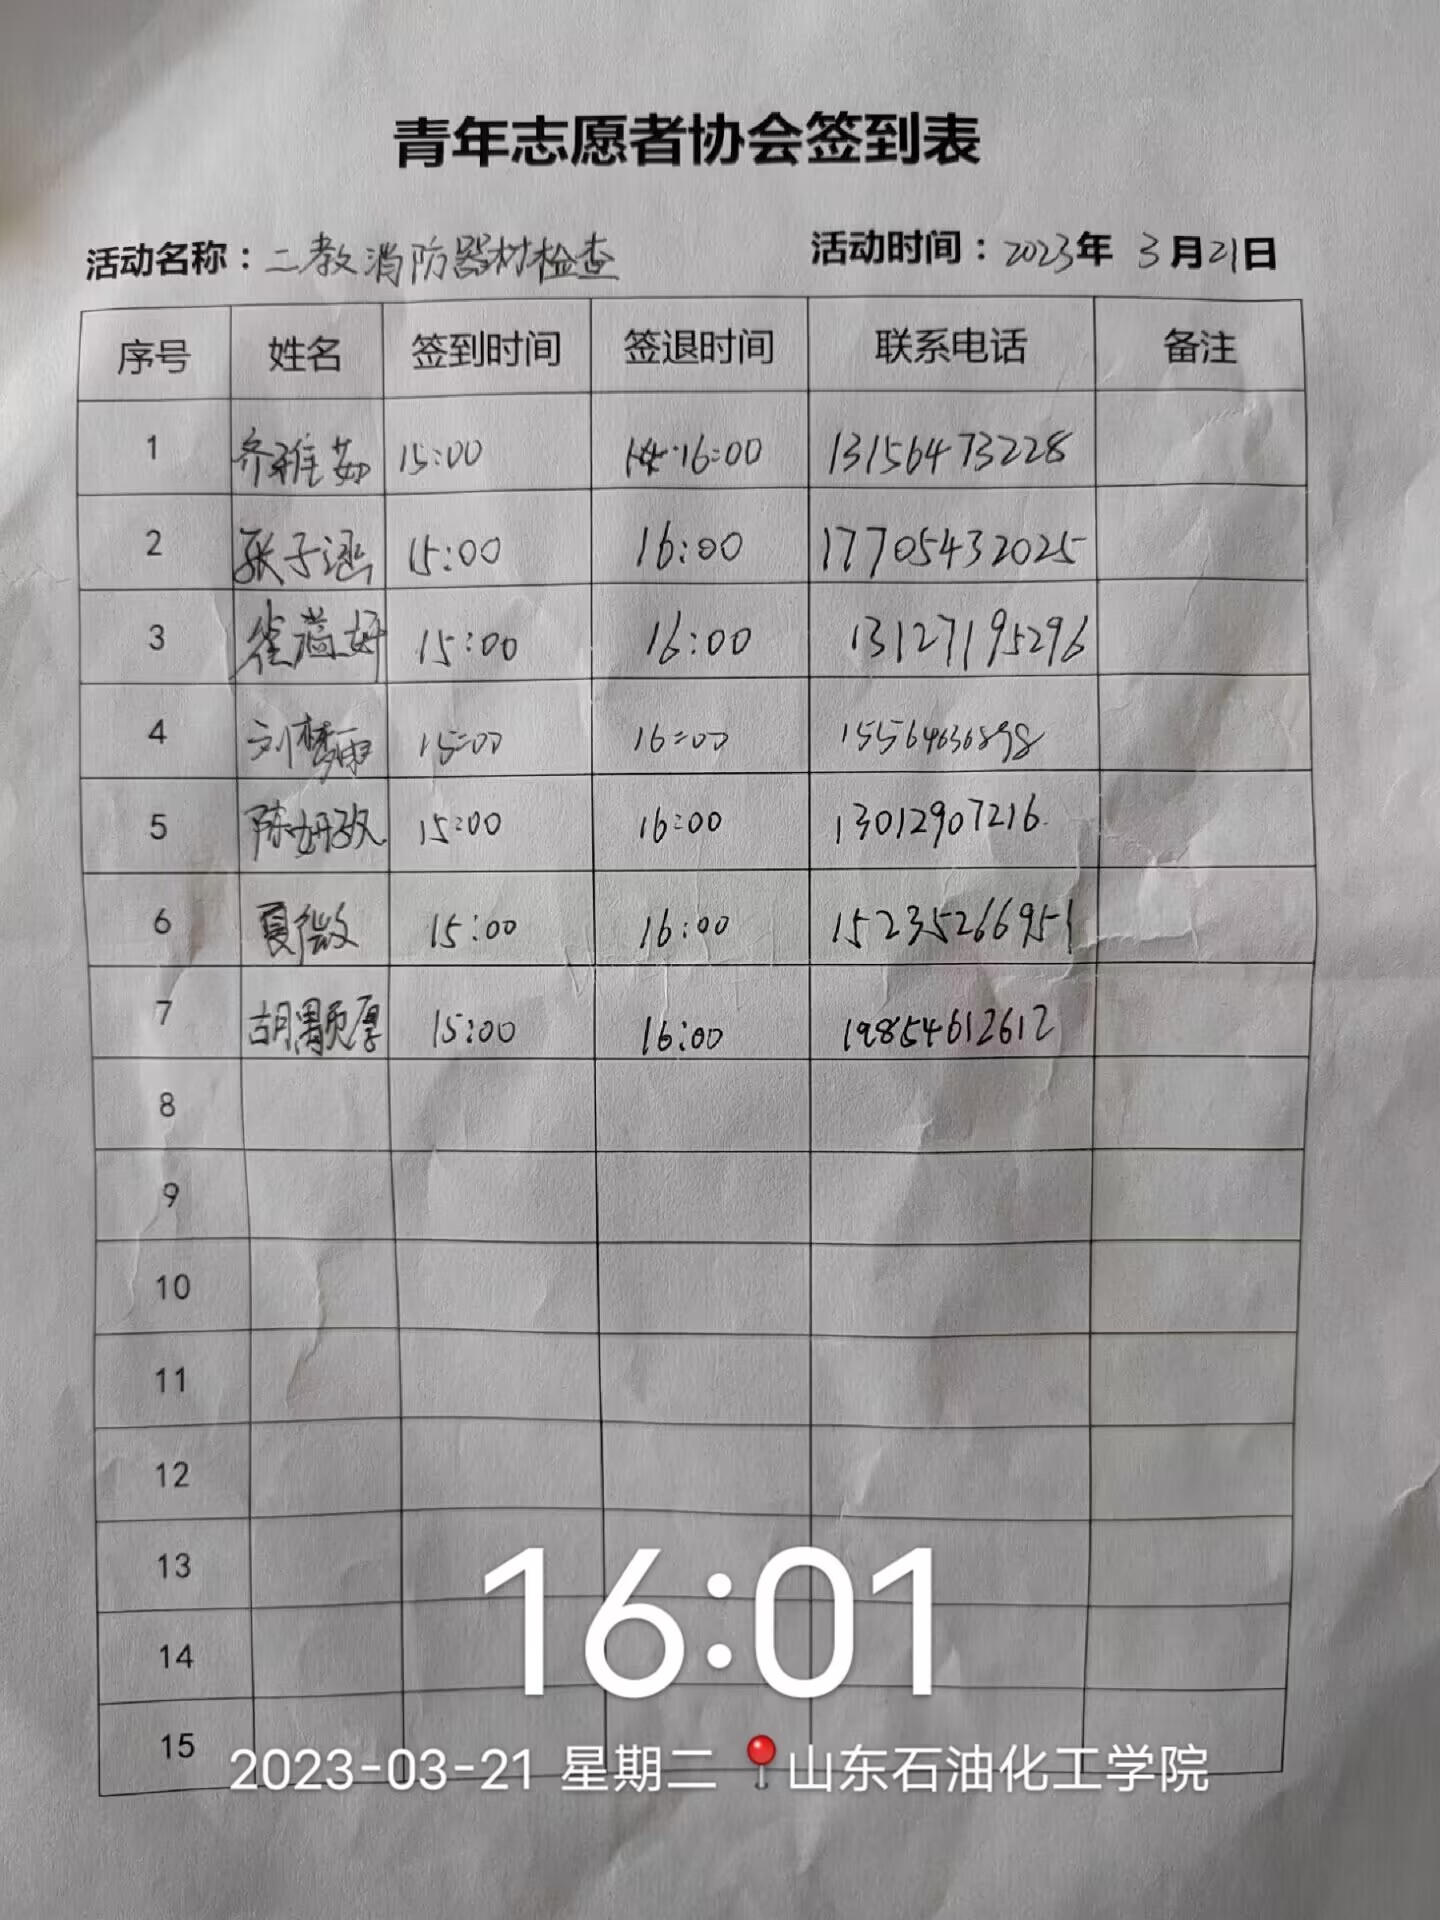 青年志愿者协会签到表
活动名称：二教消防器材检查 活动时间：2023年 3月21日
序号 姓名 签到时间 签退时间 联系电话 备注
1 齐雅茹 15:00 16:00 13156473228
2 张子涵 15:00 16:00 17705432025
3 崔溢妍 15:00 16:00 13127195296
4 刘梦雨 15:00 16:00 15564636898
5 陈妍孜 15:00 16:00 13012907216
6 夏微 15:00 16:00 15235266951
7 胡颢厚 15:00 16:00 19854612612
8
9
10
11
12
13
14
15
16:01
2023-03-21 星期二 山东石油化工学院